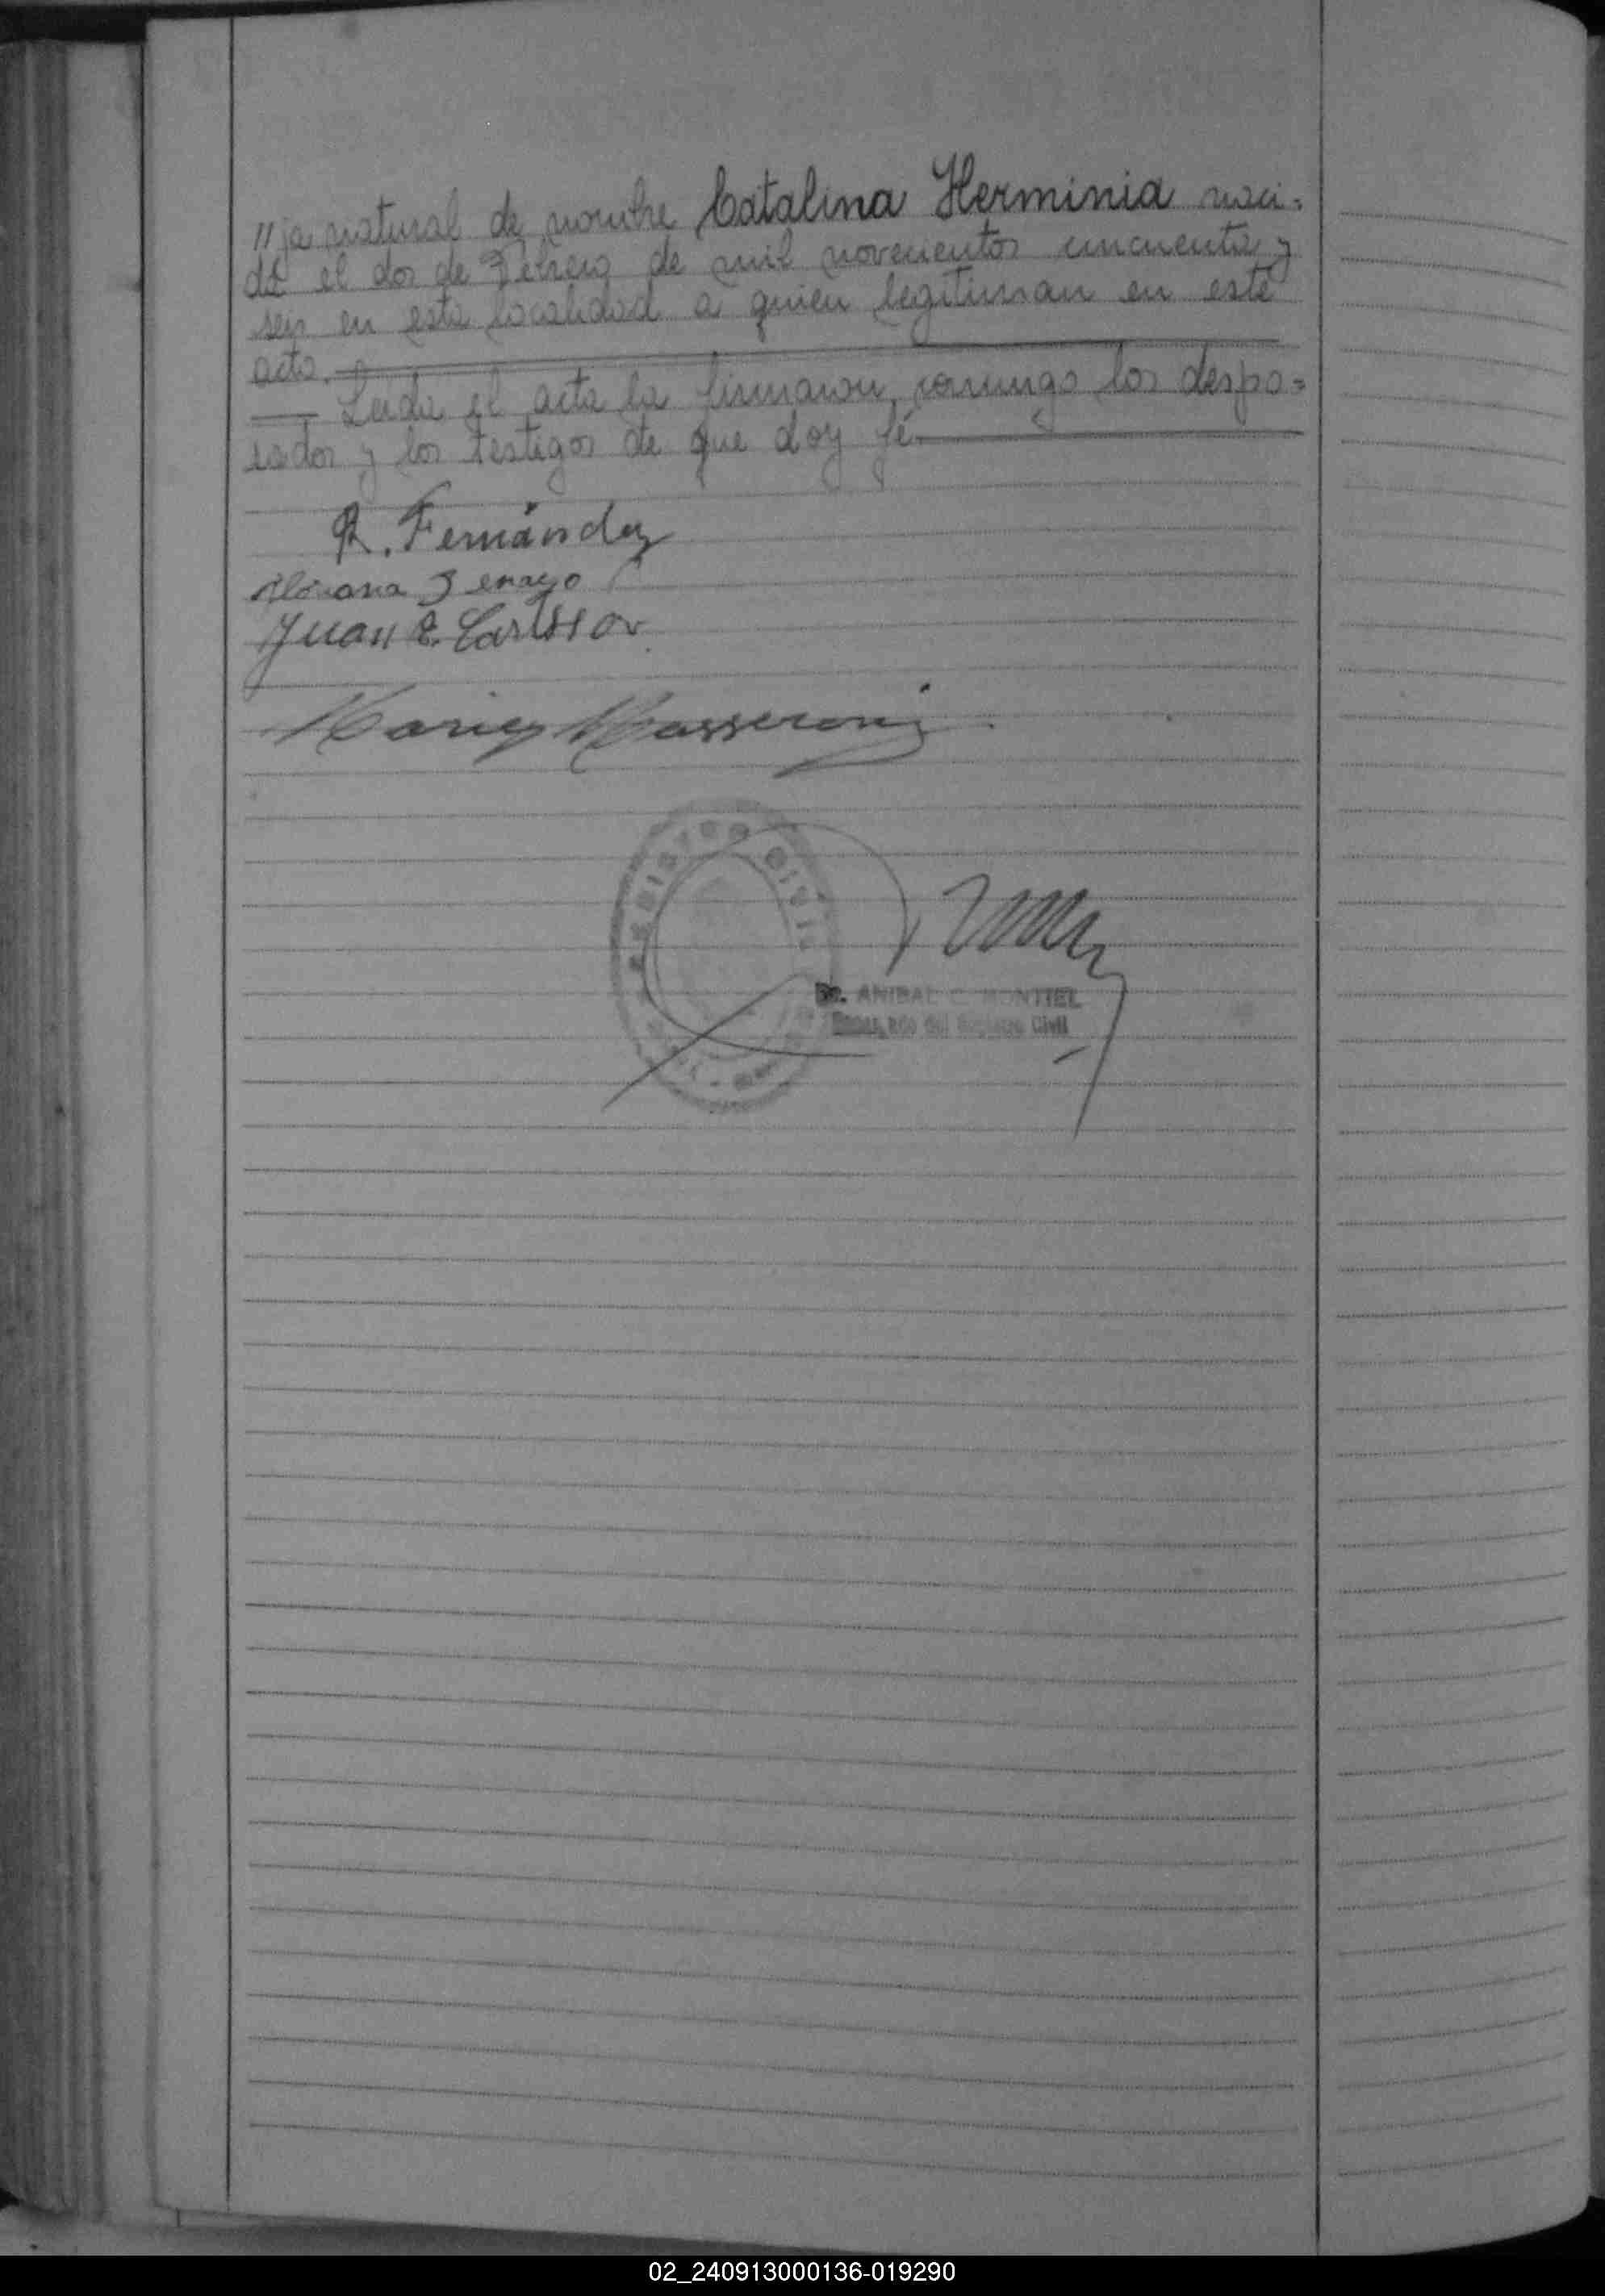 "ja natural de nombre Catalina Herminia naci=
da el dos de Febrero de mil novecientos cincuenta y
seis en esta localidad a quien legitiman en este
acto.
Leida el acta la firmaron conmigo los despo=
sados y los testigos de que doy fé.
R. Fernández
Juan E. Carlsson
Masseroni
REGISTRO CIVIL
Dr. ANIBAL C. MONTIEL
Encargado del Registro Civil
02_240913000136-019290